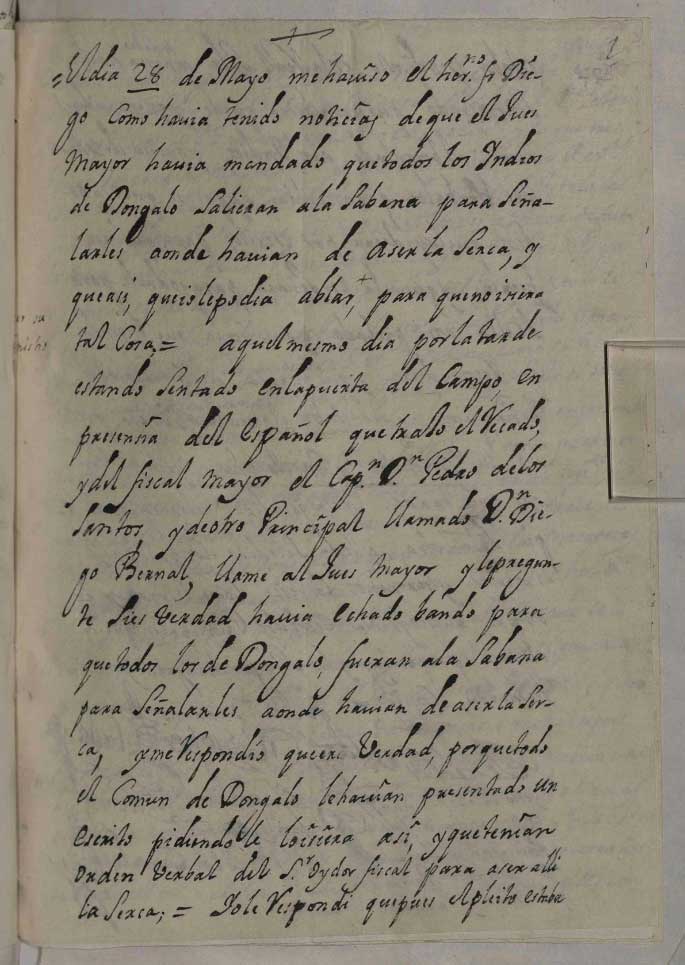 1
=El dia 28 de Mayo me haviso el her.no fr Die-
go Como havia tenido noticias de que el Jues
Mayor havia mandado que todos los Indios
de Dongalo Salieran a la Sabana para Seña-
larles aonde havian de aser la Serca, y
que asi, que io le podia ablar, para que no isiera
tal Cosa; = aquel mesmo dia por la tarde
estando Sentado en la puerta del Campo, en
presensia del español que trajo el Recado,
y del fiscal mayor el Cap.n D.n Pedro de los
Santos, y de otro Principal llamado D.n Die-
go Bernal, llame al Jues Mayor y le pregun-
te Si es Verdad havia echado bando para
que todos los de Dongalo, fueran a la Sabana
para Señalarles aonde havian de aser la Ser-
ca, y me Respondio que era Verdad, porque todo
el Comun de Dongalo le havian presentado un
escrito pidiendole lo isiera asi, y que tenian
orden Verbal del S.r Oydor fiscal para aser alli
la Serca; = Io le Respondi que pues el pleito estaba